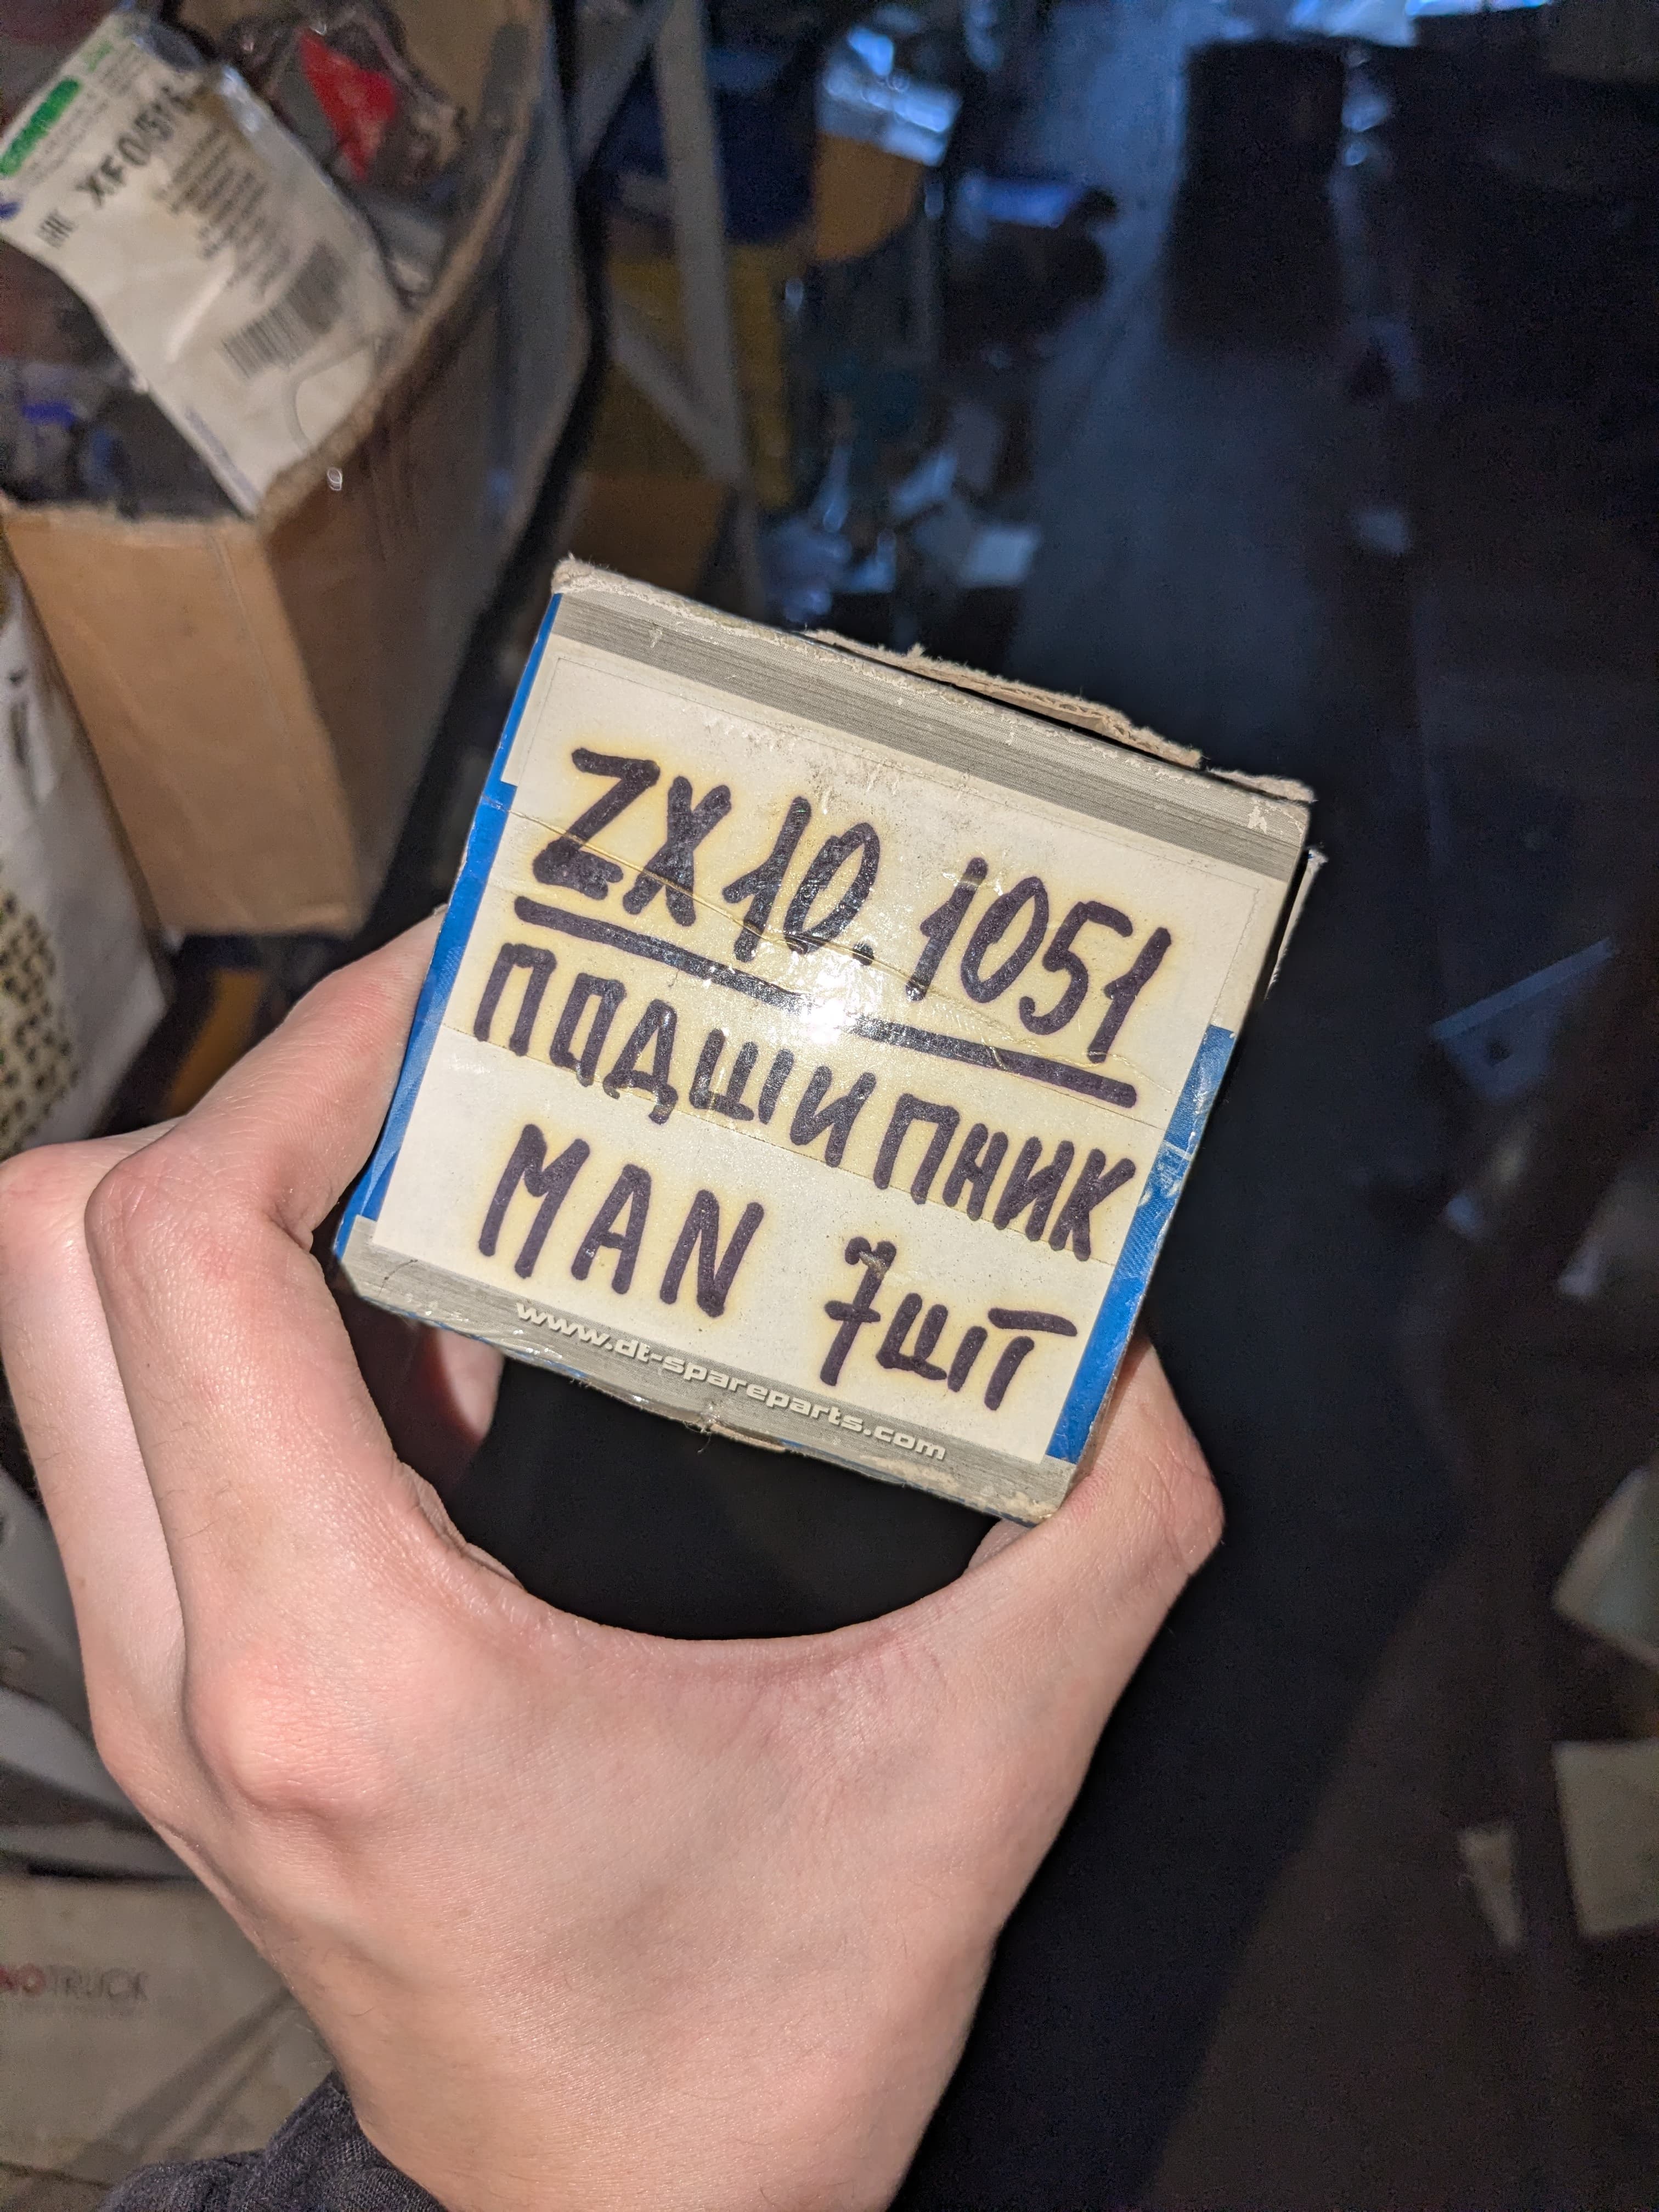 ZX10.1051
ПОДШИПНИК
MAN 7шт
www.dt-spareparts.com
TRUCK